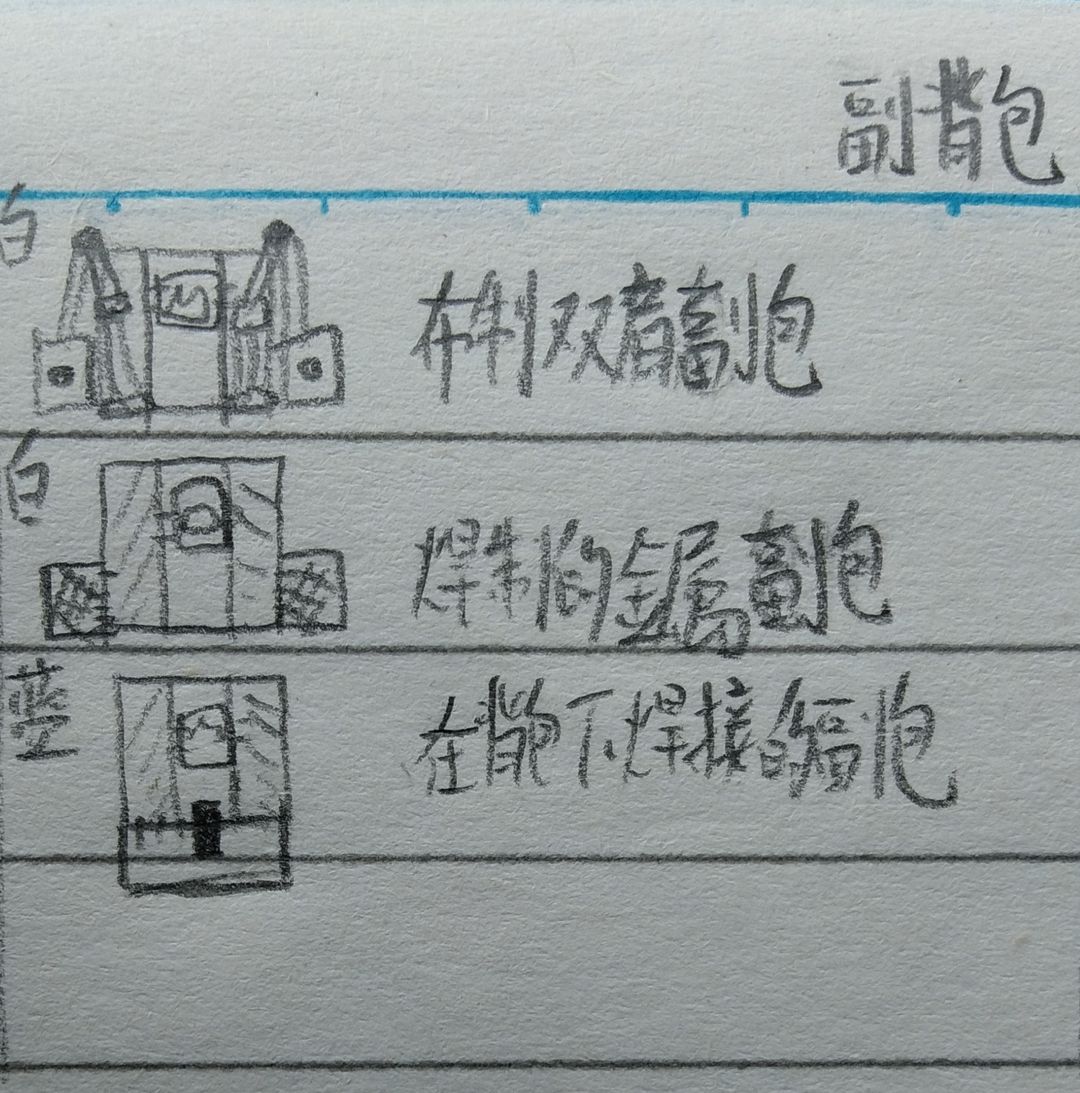 副背包
白
布制双肩副包
白
焊制的金属副包
在背包下焊接的副包